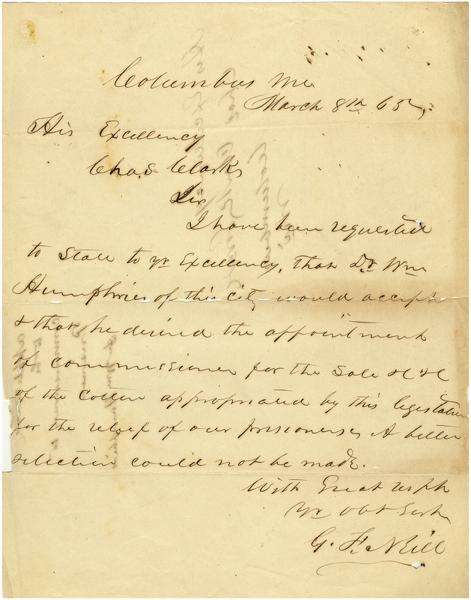 Columbus Mi
March 8th 65
His Excellency
Chas Clark
Sir
I have been requested
to State to yr Excellency, that Dr Wm
Humphries of this city would accept
& that he desired the appointment
of commissioner for the Sale &c &c
of the cotton appropriated by this legislature
for the relief of our prisioners, A better
selection could not be made.
With Great respt
Yr Obt Servt
G. F. Neill